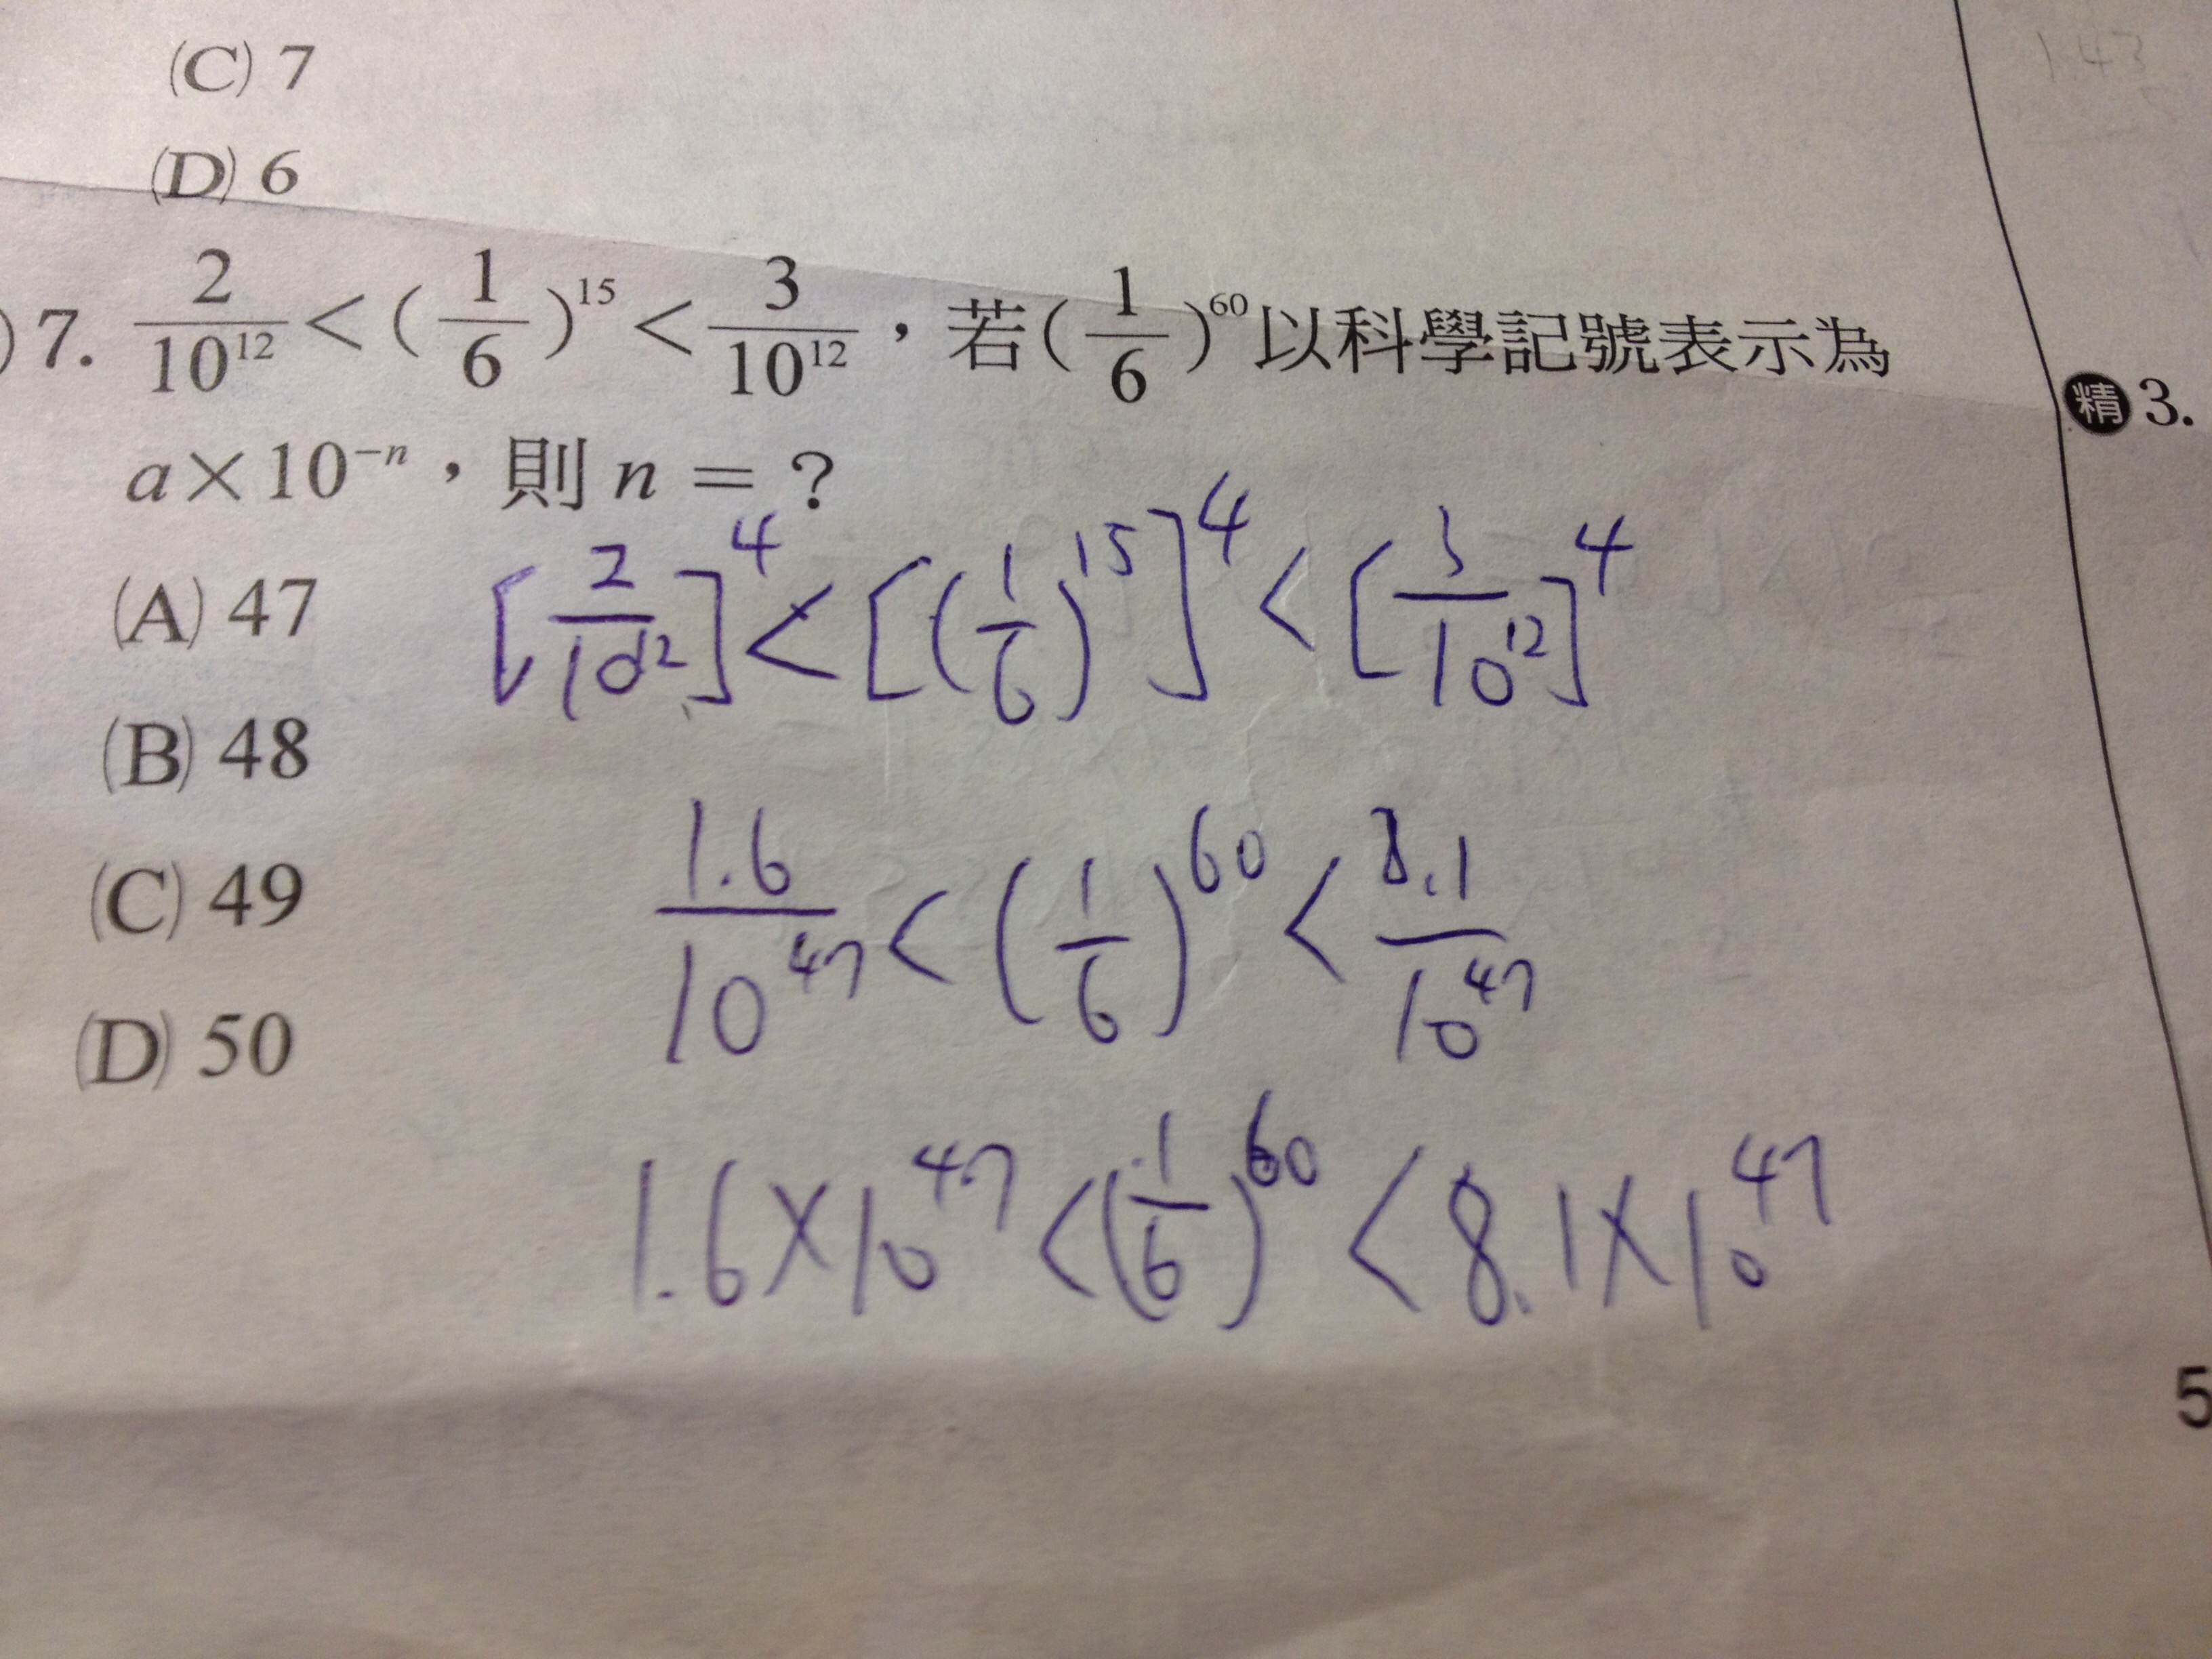 (C) 7
(D) 6
1.43
)7. 2/10¹² < (1/6)¹⁵ < 3/10¹²，若(1/6)⁶⁰以科學記號表示為
a×10⁻ⁿ，則 n = ?
(A) 47
(B) 48
(C) 49
(D) 50
[2/10¹²]⁴ < [(1/6)¹⁵]⁴ < [3/10¹²]⁴
1.6/10⁴⁷ < (1/6)⁶⁰ < 8.1/10⁴⁷
1.6×10⁴⁷ < (1/6)⁶⁰ < 8.1×10⁴⁷
精 3.
5